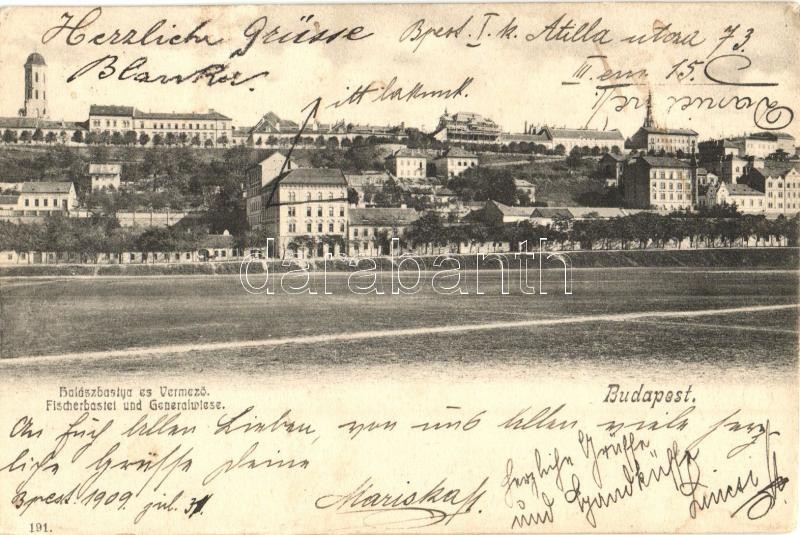 Herzliche Grüsse
Bpest. I. k. Atilla utca 73.
Blanka.
III. em 15.
itt lakunk.
darabanth
Halászbastya es Vermező.
Fischerbastei und Generalwiese.
Budapest.
An Euch allen Lieben, von uns allen viele herz
liche Grüsse Deine
Bpest. 1909. jul. 31.
Mariska
Herzliche Grüsse
und Handküsse
191.